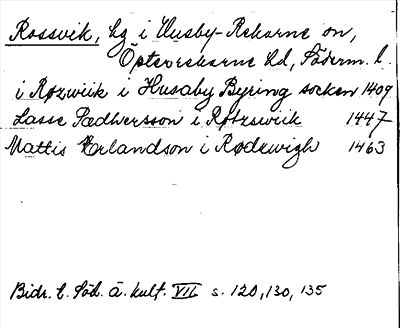 Rossvik, by i Husby-Rekarne sn,
Österrekarne hd, Söderm. l.
i Røzwiik i Husaby Byring socken 1409
Lasse Pædhersson i Røtzswiik 1447
Mattis Erlandson i Rødzwigh 1463
Bidr. t. Söd. ä. kult. VII s. 120, 130, 135